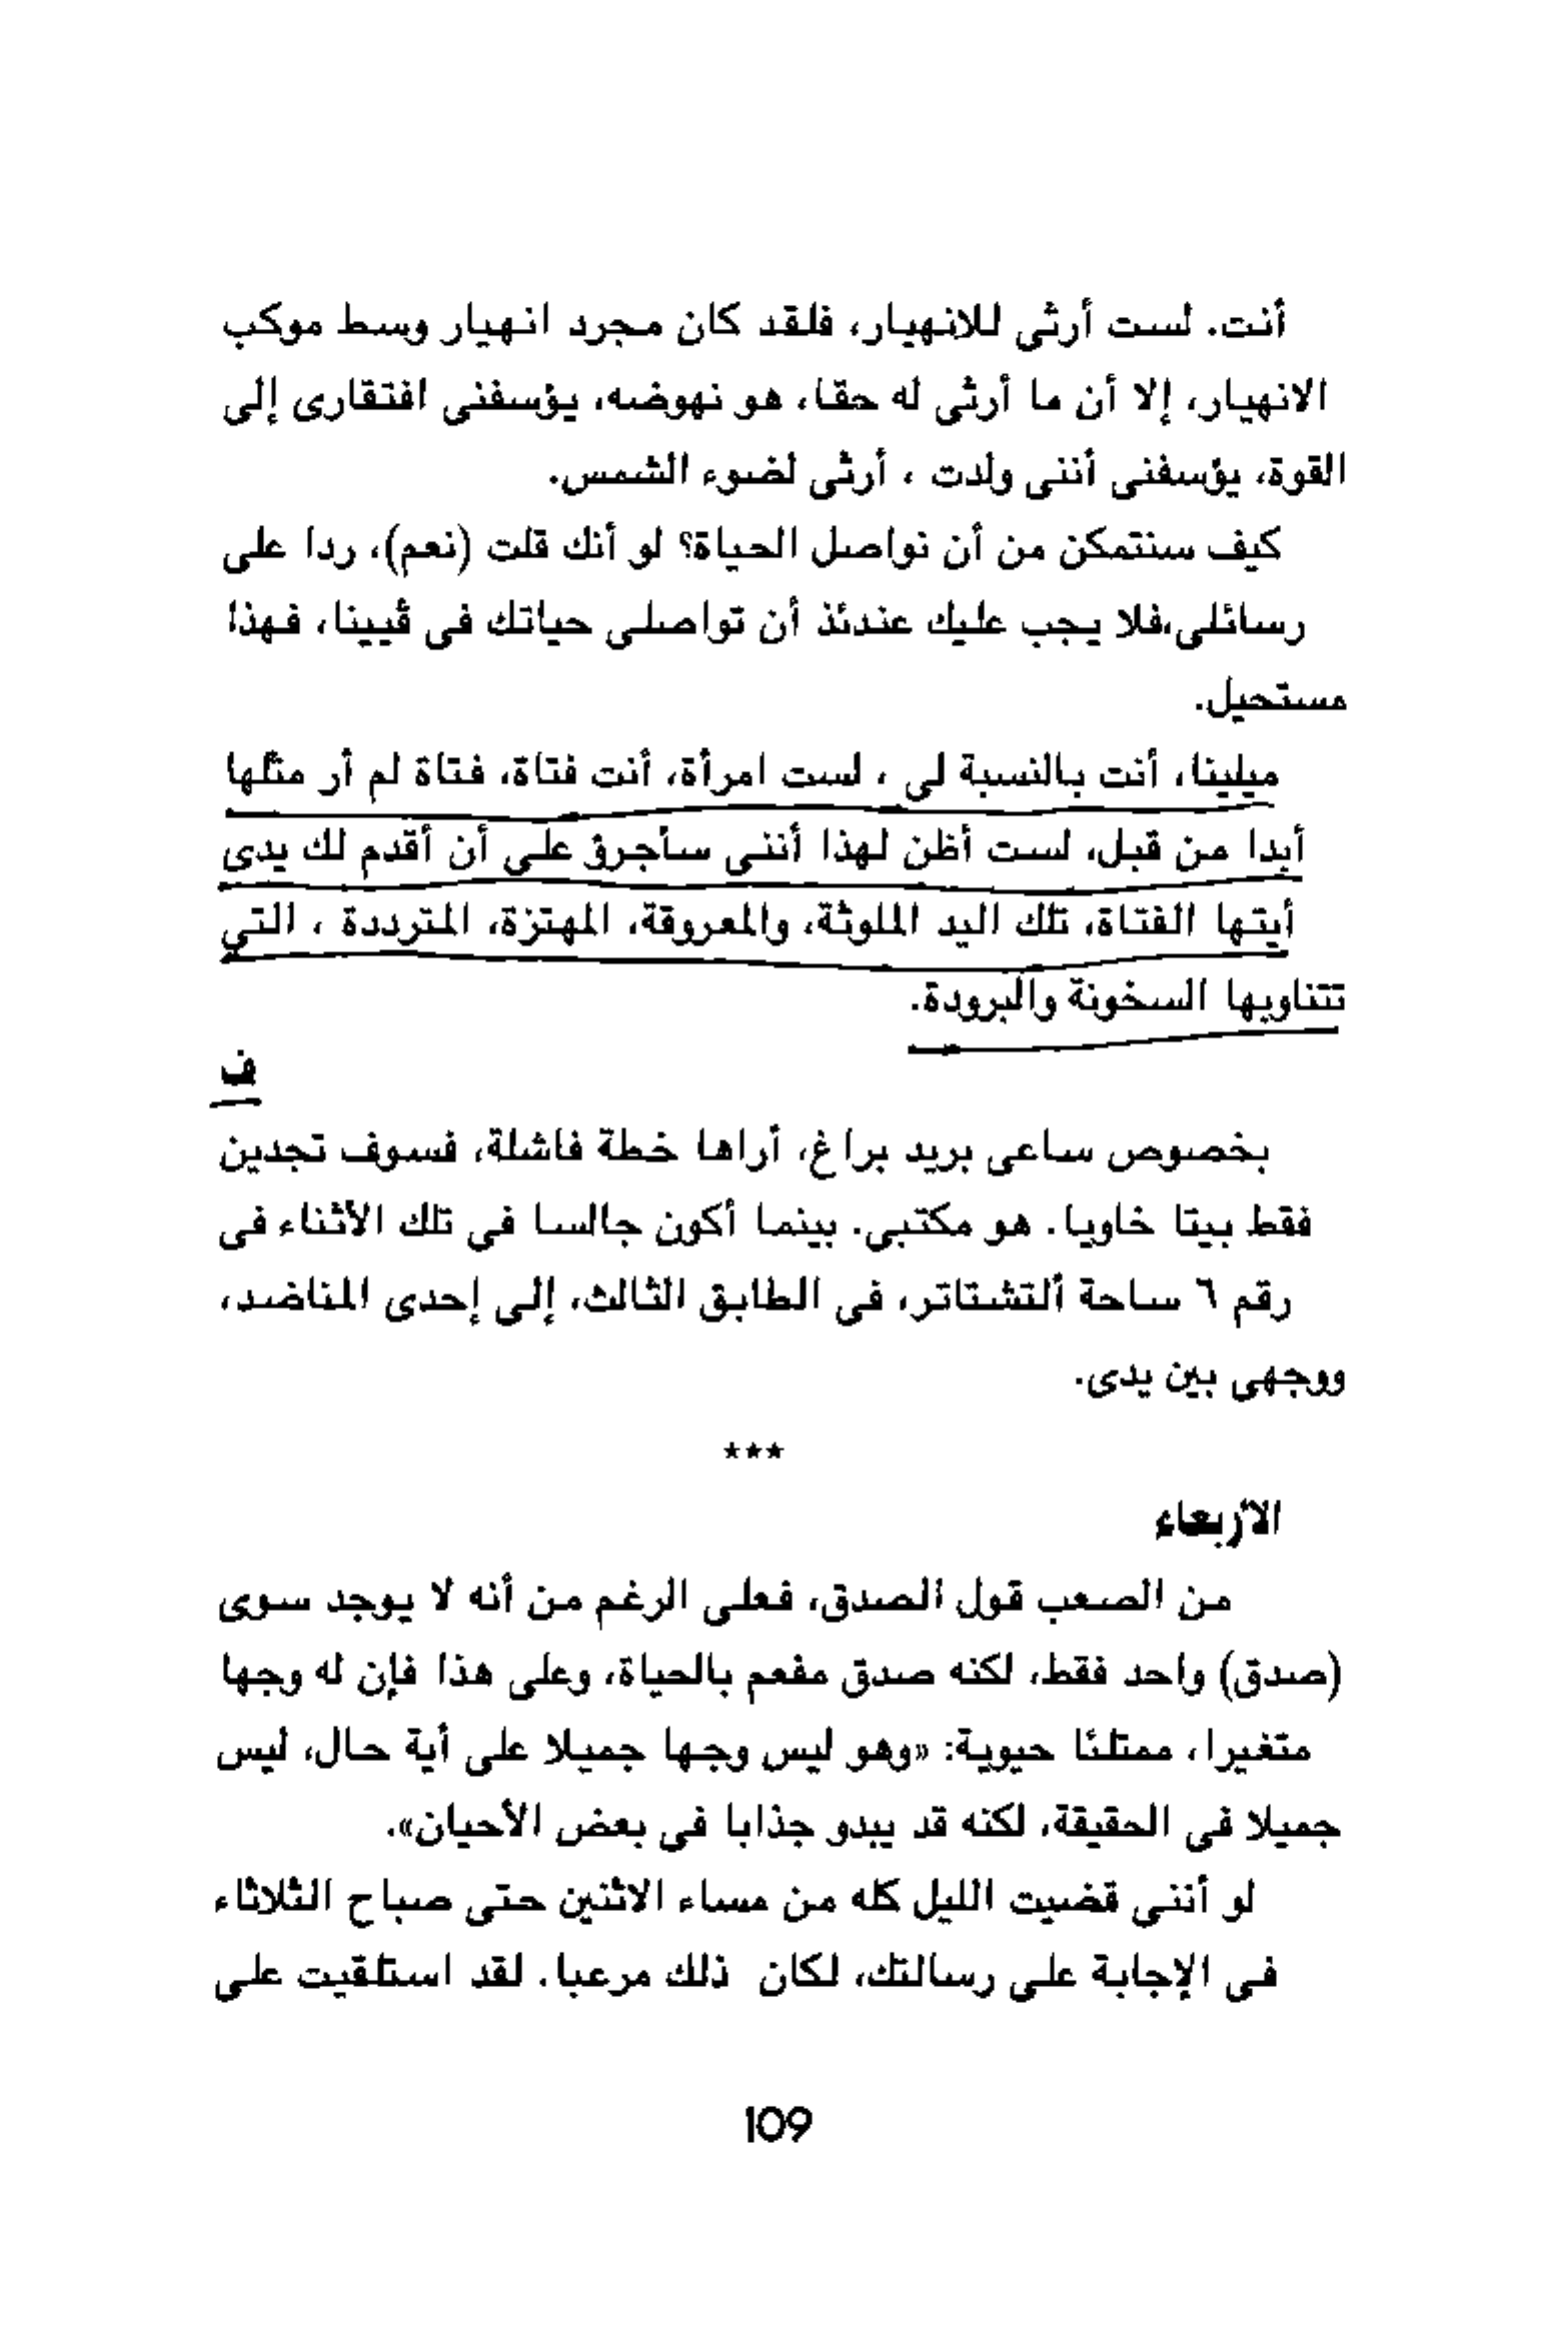 أنت. لست أرثى للانهيار، فلقد كان مجرد انهيار وسط موكب
الانهيار، إلا أن ما أرثى له حقا، هو نهوضه، يؤسفنى افتقارى إلى
القوة، يؤسفنى أننى ولدت ، أرثى لضوء الشمس.
كيف سنتمكن من أن نواصل الحياة؟ لو أنك قلت (نعم)، ردا على
رسائلى،فلا يجب عليك عندئذ أن تواصلى حياتك فى ڤيينا، فهذا
مستحيل.
ميلينا، أنت بالنسبة لى ، لست امرأة، أنت فتاة، فتاة لم أر مثلها
أبدا من قبل، لست أظن لهذا أننى سأجرؤ على أن أقدم لك يدى
أيتها الفتاة، تلك اليد الملوثة، والمعروقة، المهتزة، المترددة ، التي
تتناوبها السخونة والبرودة.
ف
بخصوص ساعى بريد براغ، أراها خطة فاشلة، فسوف تجدين
فقط بيتا خاويا. هو مكتبي. بينما أكون جالسا فى تلك الأثناء فى
رقم ٦ ساحة ألتشتاتر، فى الطابق الثالث، إلى إحدى المناضد،
ووجهى بين يدى.
***
الأربعاء
من الصعب قول الصدق، فعلى الرغم من أنه لا يوجد سوى
(صدق) واحد فقط، لكنه صدق مفعم بالحياة، وعلى هذا فإن له وجها
متغيرا، ممتلئا حيوية: «وهو ليس وجها جميلا على أية حال، ليس
جميلا فى الحقيقة، لكنه قد يبدو جذابا فى بعض الأحيان».
لو أننى قضيت الليل كله من مساء الاثنين حتى صباح الثلاثاء
فى الإجابة على رسالتك، لكان ذلك مرعبا. لقد استلقيت على
109